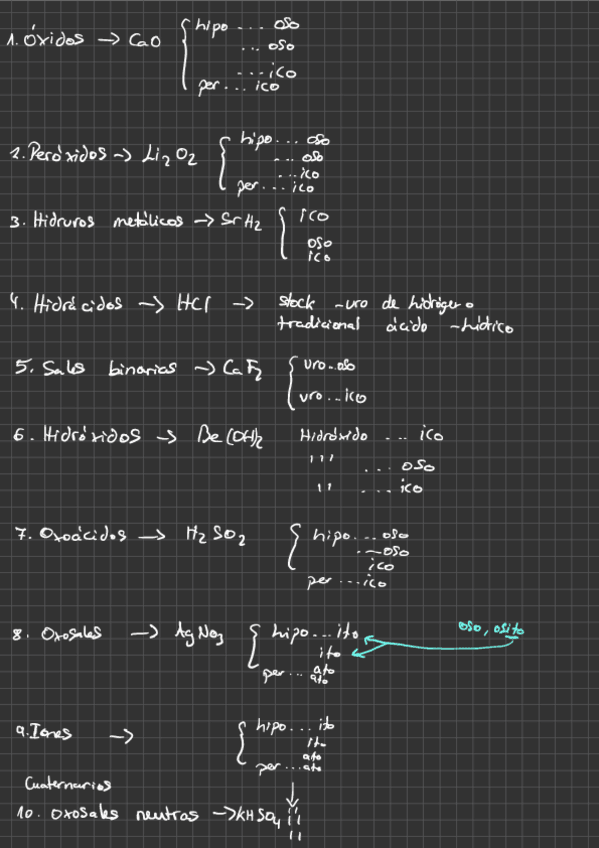 1. Óxidos → CaO { hipo ... oso
... oso
... ico
per ... ico
2. Peróxidos → Li2O2 { hipo ... oso
... oso
... ico
per ... ico
3. Hidruros metálicos → SrH2 { ico
oso
ico
4. Hidrácidos → HCl → stock -uro de hidrógeno
tradicional ácido -hídrico
5. Sales binarias → CaF2 { uro...oso
uro...ico
6. Hidróxidos → Be(OH)2 Hidróxido ... ico
''' ... oso
'' ... ico
7. Oxoácidos → H2SO2 { hipo... oso
...oso
ico
per ...ico
8. Oxosales → AgNO3 { hipo...ito
ito
per... ato
ato
oso, osito
9. Iones → { hipo ... ito
ito
ato
per ...ato
Cuaternarios
10. Oxosales neutras → KHSO4 ''
''